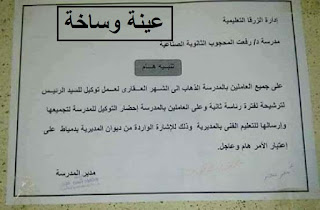 عينة وساخة
إدارة الزرقا التعليمية
مدرسة د/ رفعت المحجوب الثانوية الصناعية
تنبيه هام
على جميع العاملين بالمدرسة الذهاب إلى الشهر العقارى لعمل توكيل للسيد الرئيس
لترشيحة لفترة رئاسة ثانية وعلى العاملين بالمدرسة إحضار التوكيل للمدرسة لتجميعها
وإرسالها للتعليم الفنى بالمديرية وذلك للإشارة الواردة من ديوان المديرية بدمياط على
إعتبار الأمر هام وعاجل.
مدير المدرسة